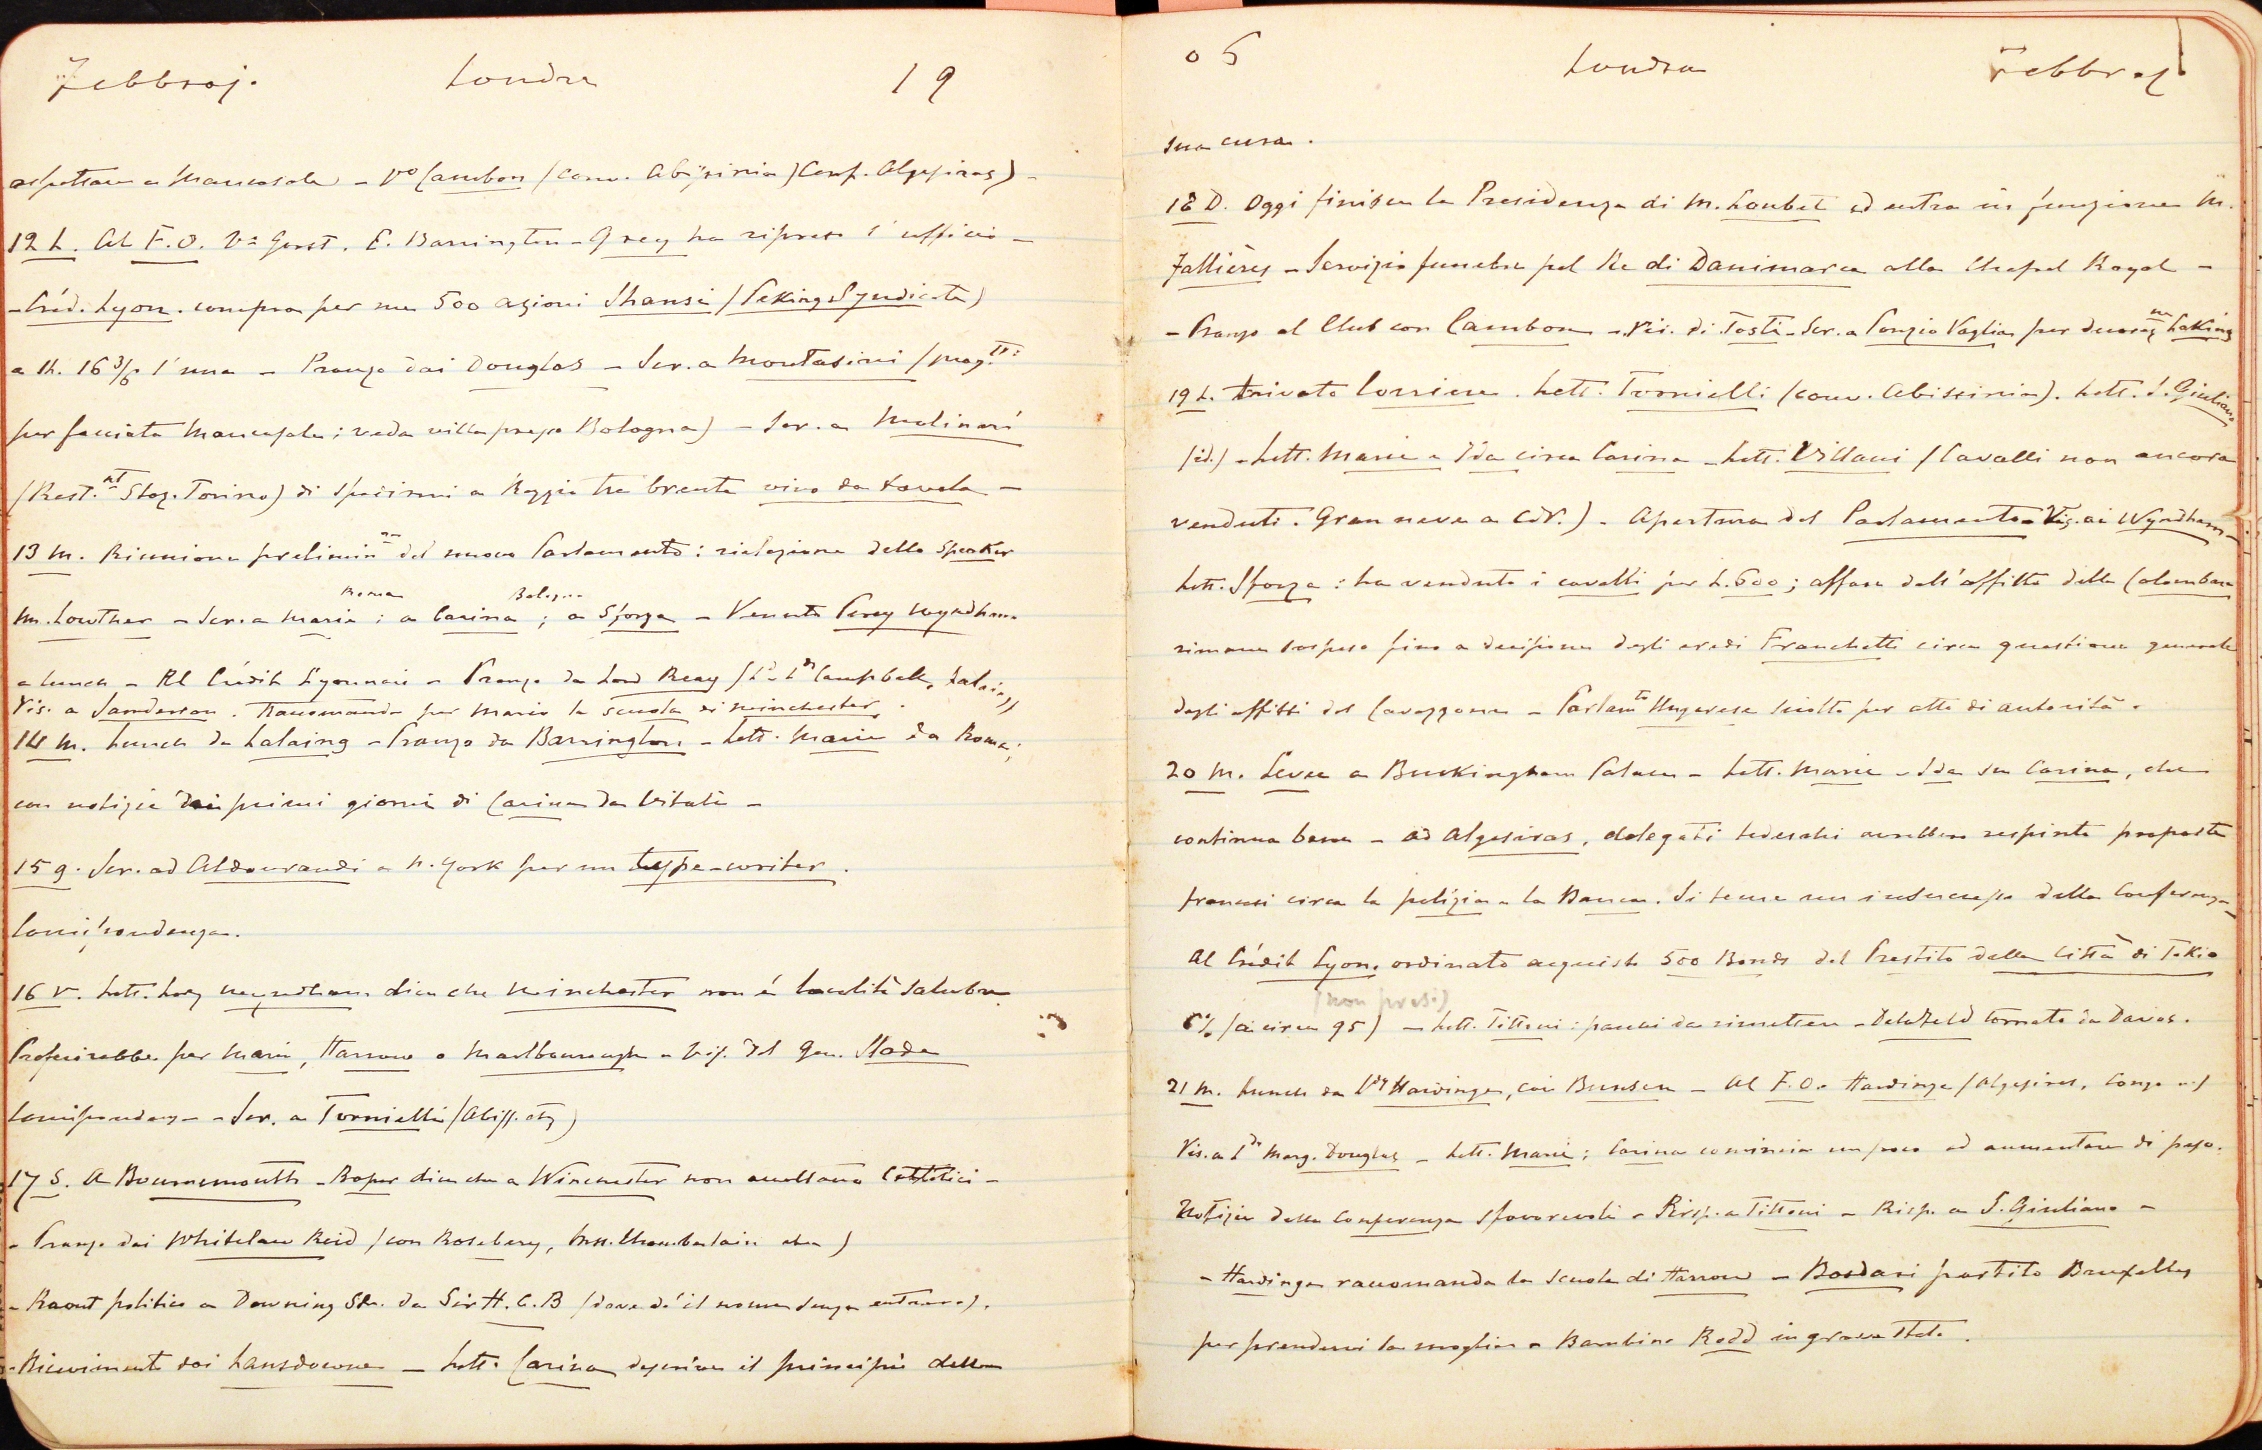 Febbraj. Londra 19
aspettare a Mancasale – Vo Cambon (conv. Abissinia) Conf. Algesiras) –
12 L. Al F.O. Va Gorst. E. Barrington – Grey ha ripreso l'ufficio –
– Créd. Lyon. compra per me 500 azioni Shansi (Peking Syndicate)
a l'una – Pranzo dai Douglas – Scr. a Montasini (prog.tti
per facciata Mancasale; veda villa presso Bologna) – Scr. a Molinari
(Rest.nt Staz. Torino) di spedirmi a Reggio tre brente vino da tavola –
13 M. Riunione prelimin del nuovo Parlamento: rielezione dello Speaker
Roma Bologna
M. Lowther – Scr. a Marie; a Carina; a Sforza – Venuto Percy Wyndham
a lunch – Al Crédit Lyonnais – Pranzo da Lord Reay (Campbell, Lalaing)
Vis. a Sanderson. Raccomanda per Mario la scuola di Winchester.
14 M. Lunch da Lalaing – Pranzo da Barrington – Lett. Marie da Roma;
con notizie dei primi giorni di Carina da Vitali –
15 g. Scr. ad Aldovrandi a N. York per un type-writer.
Corrispondenza.
16 V. Lett. Lady Wyndham dice che Winchester non è località salubre.
Preferirebbe per Mario, Harrow o Marlborough – Vis. del Gen. Slade
Corrispondenz – Scr. a Tornielli (Abiss. etc)
17 S. A Bournemouth – Roper dice che a Winchester non accettano Cattolici –
– Pranzo dai Whitelaw Reid (con Rosebery, Mrs. Chamberlain etc)
– Raout politico a Downing Str. da Sir H. C. B (dove do' il nome senza entrare).
– Ricevimento dai Lansdowne – Lett. Carina descrive il principio della
05 Londra Febbraj
sua cura.
18 D. Oggi finisce la Presidenza di M. Loubet ed entra in funzione M.
Fallières – Servizio funebre pel Re di Danimarca alla Chapel Royal –
– Pranzo al Club con Cambon – Vis. di Tosti – Scr. a Ponzio Vaglia per Laking
19 L. Arrivato Corriere. Lett. Tornielli (conv. Abissinia). Lett. S. Giuliano
(id.) – Lett. Marie e Ida circa Carina – Lett. Villani (Cavalli non ancora
venduti. Gran neve a CdV.) – Apertura del Parlamento – Vis. ai Wyndham –
Lett. Sforza: ha venduto i cavalli per L. 600; affare dell'affitto della Colombara
rimane sospeso fino a decisione degli eredi Franchetti circa questione generale
degli affitti del Cavazzone – Parlamto Ungherese sciolto per atto di autorità.
20 M. Levee a Buckingham Palace – Lett. Marie – Ida su Carina, che
continua bene – Ad Algesiras, delegati tedeschi avrebbero respinto proposte
francesi circa la polizia e la Banca. Si teme un insuccesso della Conferenza –
Al Crédit Lyon. ordinato acquisto 500 Bonds del Prestito della Città di Tokio
(non presi)
5% (a circa 95) – Lett. Tittoni: panni da rimettere – tornato da Davos.
21 M. Lunch da Ldy Hardinge, coi Bunsen – Al F.O. Hardinge (Algesiras, Congo)
Vis. a Ldy Marg. Douglas – Lett. Marie; Carina comincia un poco ad aumentare di peso.
Notizie della Conferenza sfavorevoli – Risp. a Tittoni – Risp. a S. Giuliano –
– Hardinge raccomanda la scuola di Harrow – Bordari partito Bruxelles
per prendervi la moglie – Bambino Redd in grave stato.